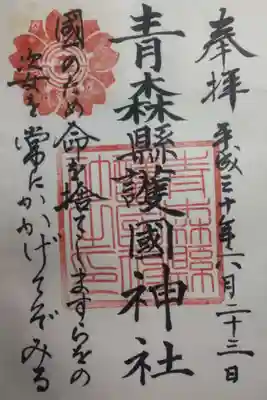 奉拝
平成三十年八月二十三日
青森縣護國神社
國のため命を捨てしますらをの
姿を常にかかげてぞみる